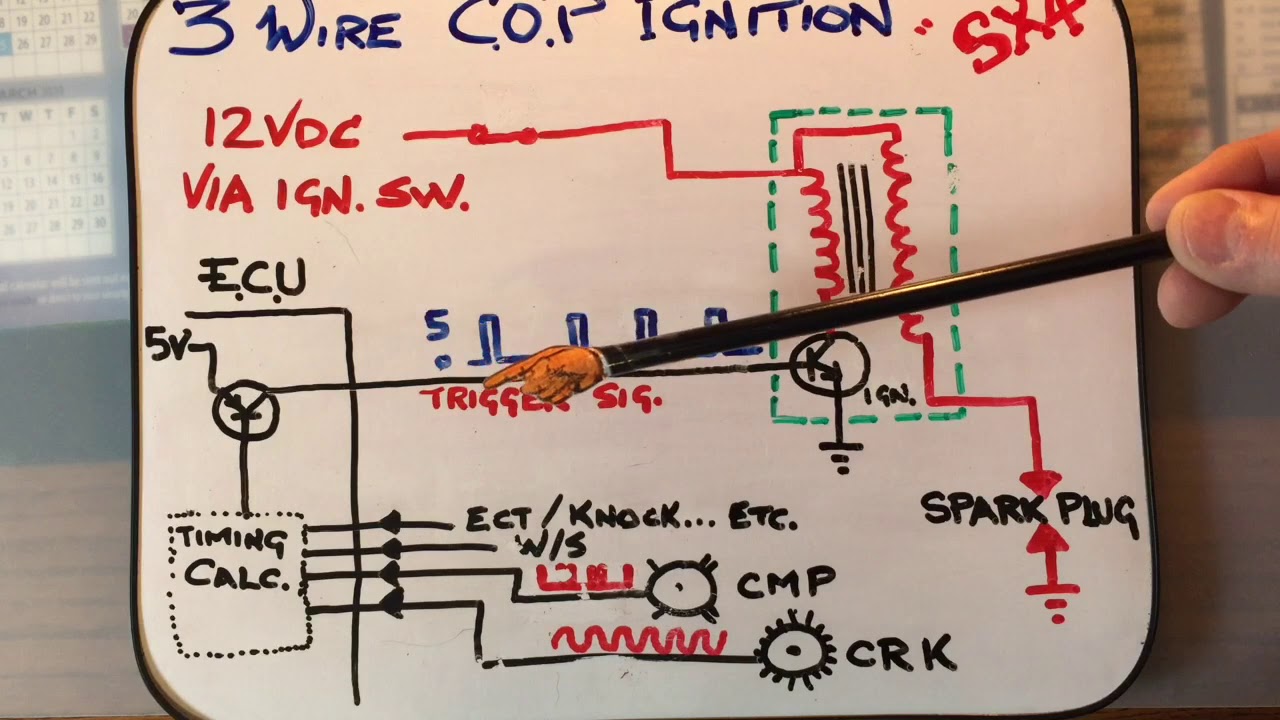 3 WIRE C.O.P IGNITION
12VDC
VIA IGN. SW.
E.C.U
5V
5
0
TRIGGER SIG.
IGN.
SPARK PLUG
TIMING
CALC.
ECT / KNOCK... ETC.
W/S
CMP
CRK
MARCH
T W T F S